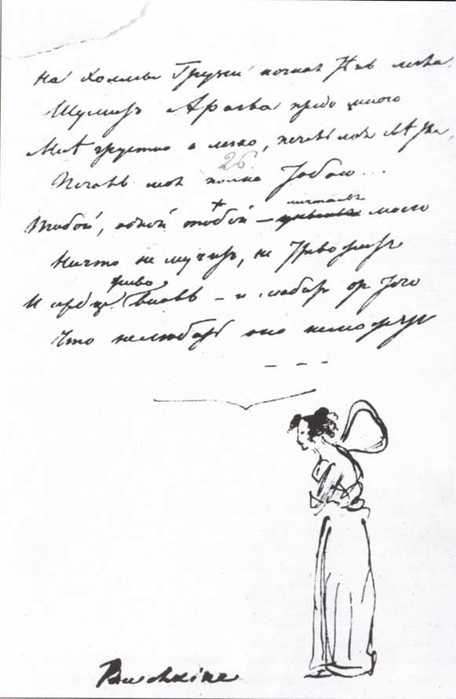 На холмы Грузии ночная тѣнь легла
Шумитъ Арагва предо мною
Мнѣ грустно и легко, печаль моя свѣтла
26.
Печаль моя полна тобою...
Тобой, одной тобой — унынья моего
Ничто не мучитъ, не тревожитъ
И сердце вновь — и любитъ отъ того
Что не любить оно не можетъ
Pouchkine